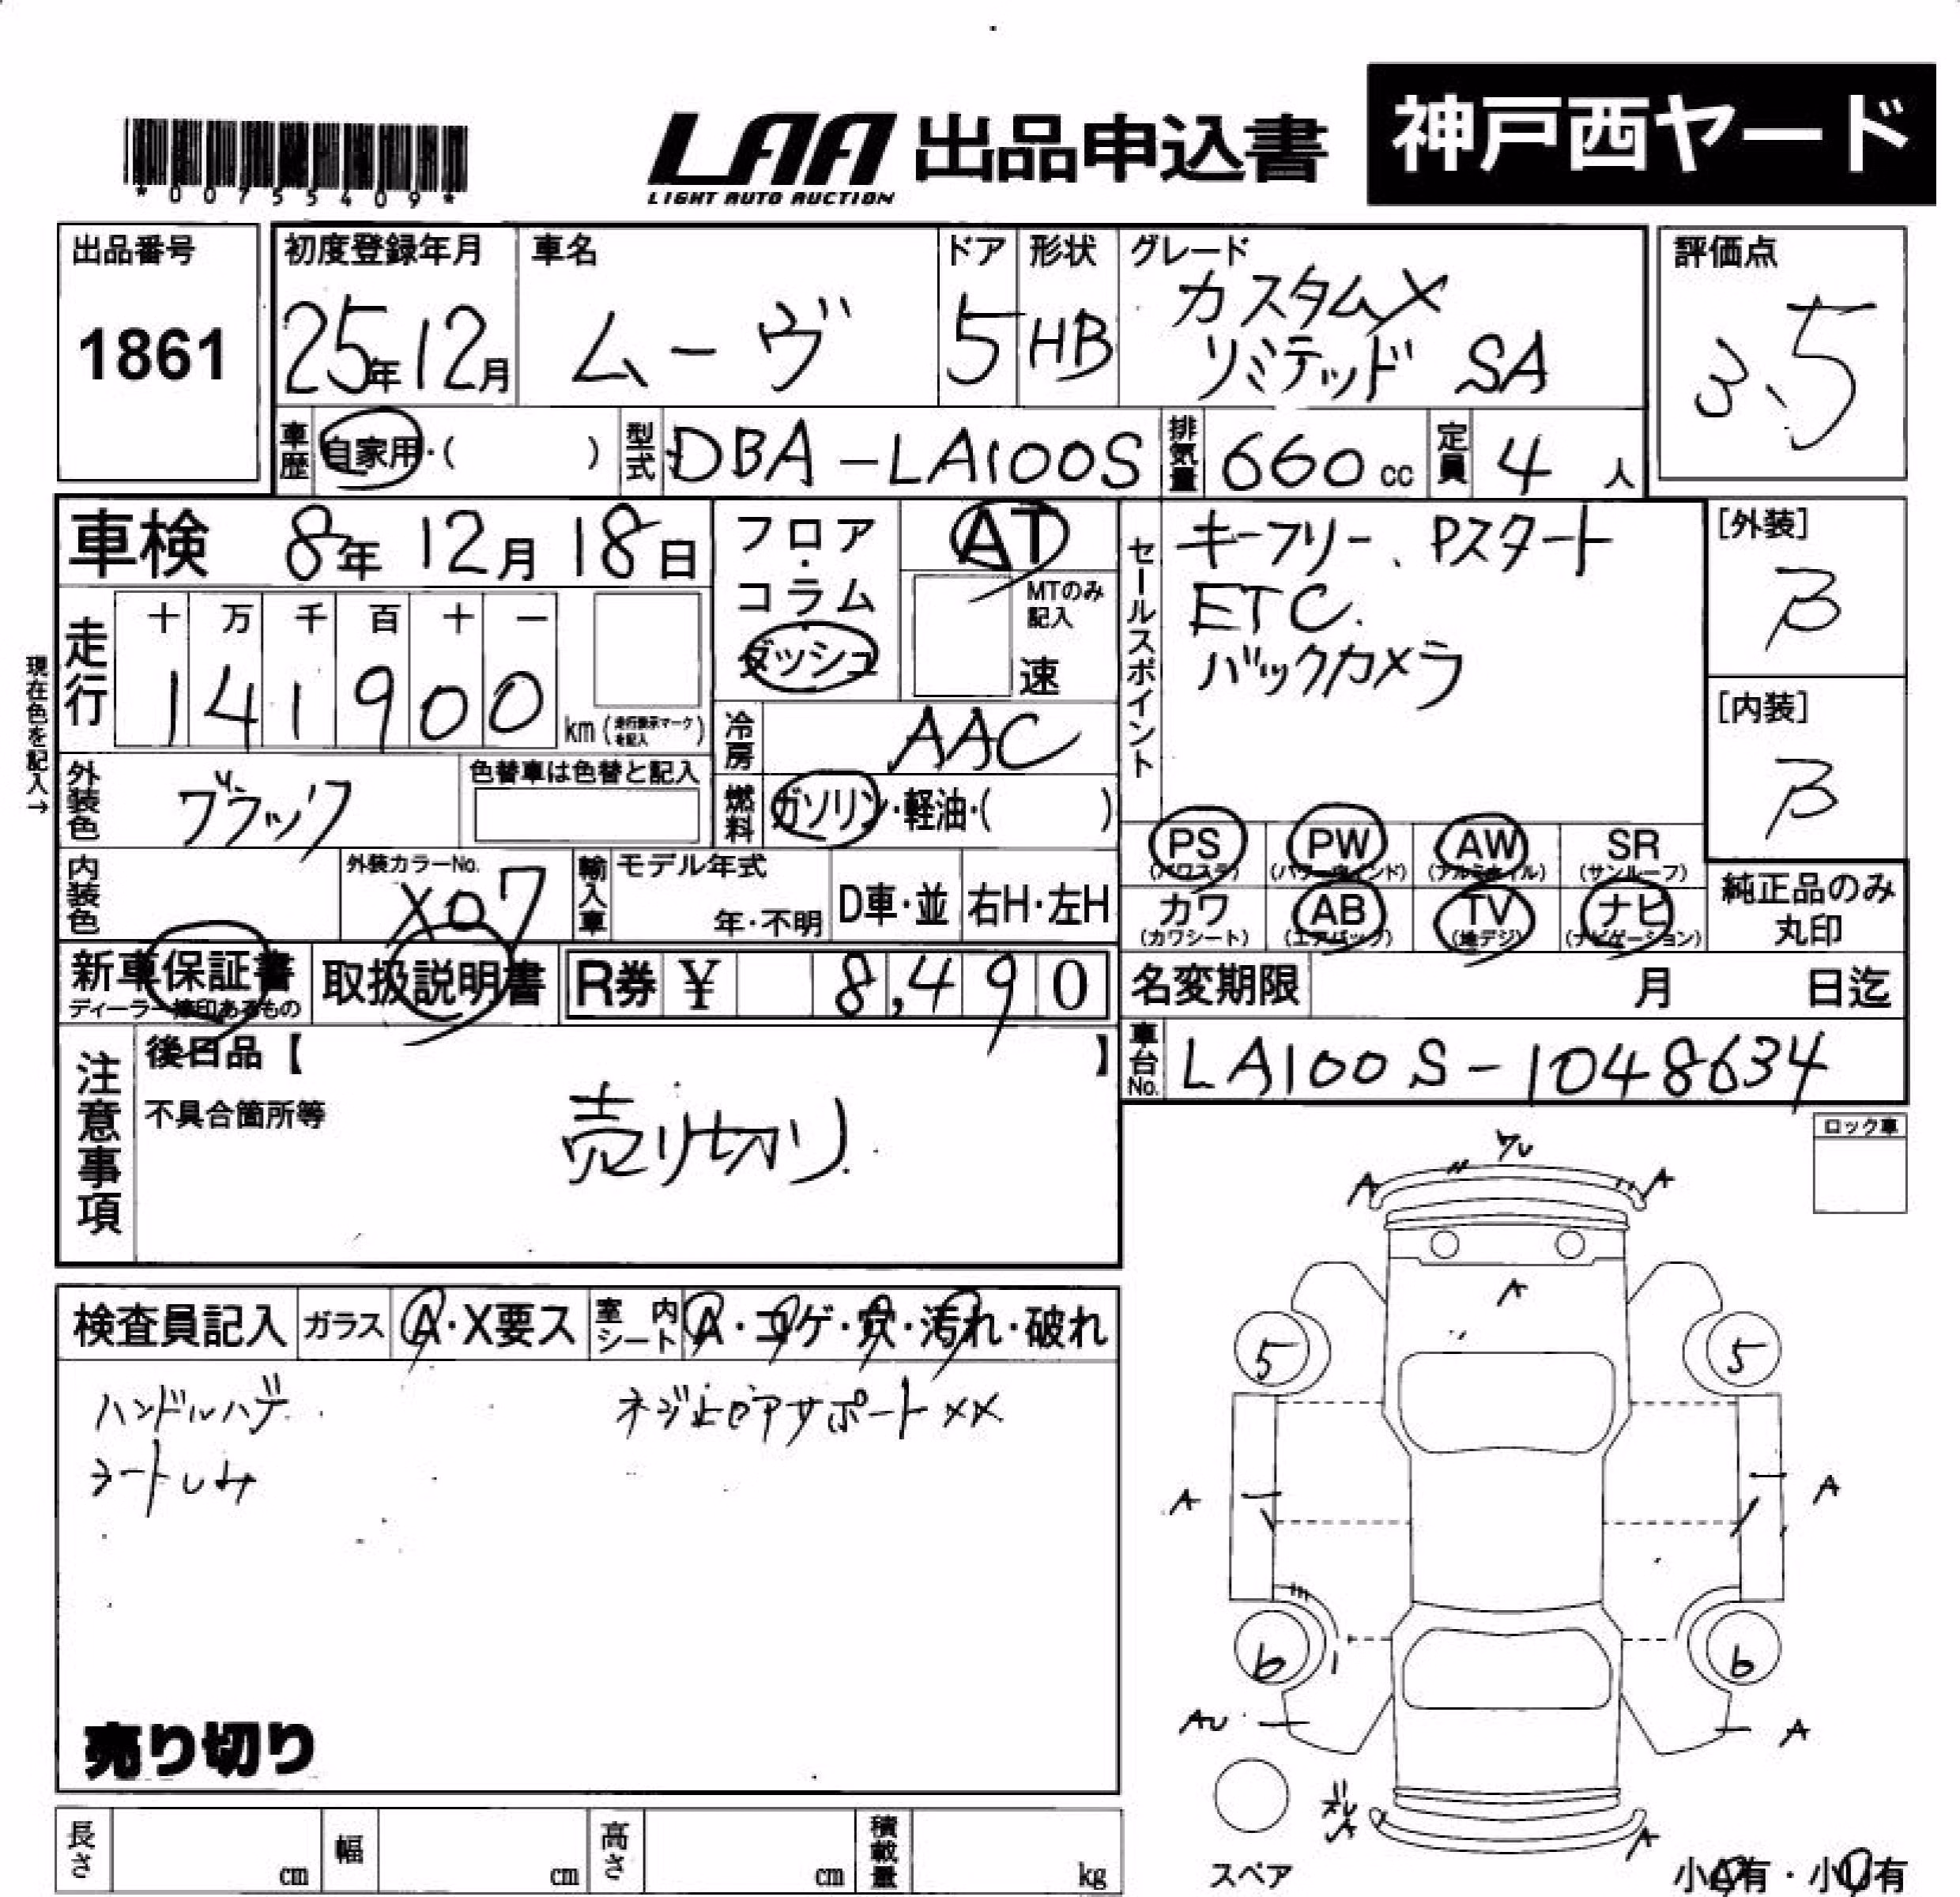 神戸西ヤード
LAA 出品申込書
LIGHT AUTO AUCTION
*00755409*
出品番号
1861
初度登録年月
25年12月
車名
ムーヴ
ドア
5
形状
HB
グレード
カスタムX
リミテッド SA
評価点
3.5
車歴
自家用・( )
型式
DBA-LA100S
排気量
660cc
定員
4人
車検 8年12月18日
フロア・
コラム
ダッシュ
AT
MTのみ
記入
速
セールスポイント
キーフリー、Pスタート
ETC.
バックカメラ
[外装]
B
[内装]
B
現在色を記入→
走行
十 万 千 百 十 一
1 4 1 9 0 0
km (走行表示マークを記入)
冷房
AAC
外装色
ブラック
色替車は色替と記入
燃料
ガソリン・軽油・( )
PS (パワステ)
PW (パワーウィンド)
AW (アルミホイル)
SR (サンルーフ)
カワ (カワシート)
AB (エアバック)
TV (地デジ)
ナビ (ナビゲーション)
純正品のみ
丸印
内装色
外装カラーNo.
X07
輸入車
モデル年式
年・不明
D車・並
右H・左H
新車保証書
ディーラー捺印あるもの
取扱説明書
R券 ¥ 8,490
名変期限 月 日迄
車台No.
LA100S-1048634
注意事項
後日品【 】
不具合箇所等
売り切り
ロック車
検査員記入
ガラス
A・X要ス
室内シート
A・コゲ・穴・汚れ・破れ
ハンドルハゲ
シートしみ
サポートXX
売り切り
A
A
A
5
5
A
A
6
6
AU
A
A
スペア
小A有・小U有
長さ cm
幅 cm
高さ cm
積載量 kg